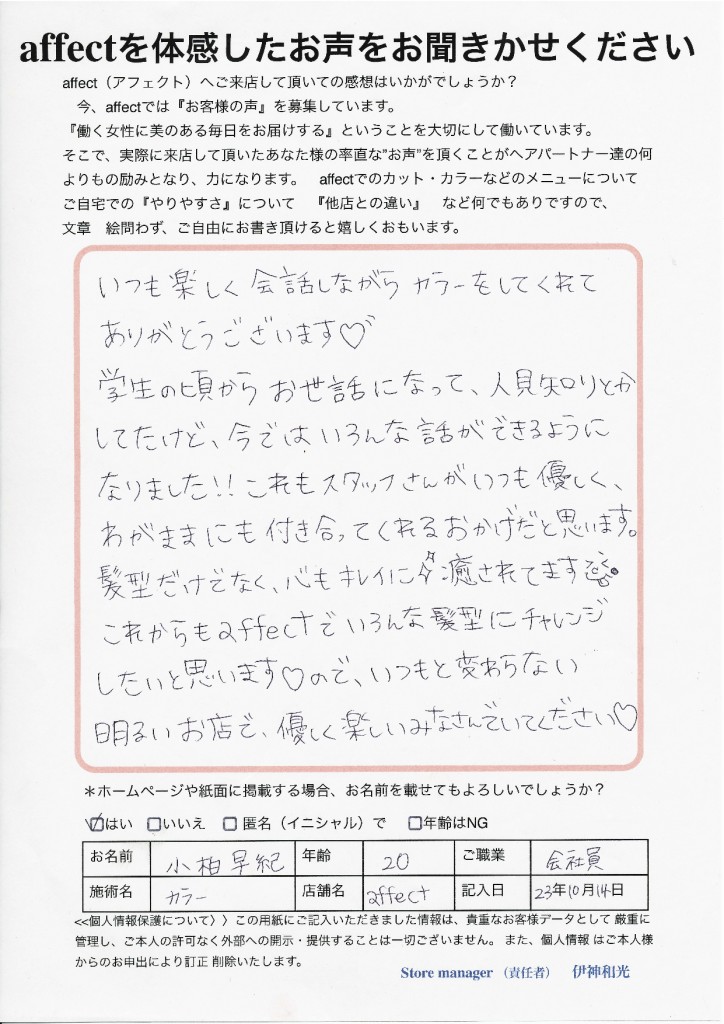 affectを体感したお声をお聞きかせください
affect（アフェクト）へご来店して頂いての感想はいかがでしょうか？
今、affectでは『お客様の声』を募集しています。
『働く女性に美のある毎日をお届けする』ということを大切にして働いています。
そこで、実際に来店して頂いたあなた様の率直な”お声”を頂くことがヘアパートナー達の何
よりもの励みとなり、力になります。　affectでのカット・カラーなどのメニューについて
ご自宅での『やりやすさ』について　『他店との違い』　など何でもありですので、
文章　絵問わず、ご自由にお書き頂けると嬉しくおもいます。
いつも楽しく会話しながらカラーをしてくれて
ありがとうございます♡
学生の頃からお世話になって、人見知りとか
してたけど、今ではいろんな話ができるように
なりました!! これもスタッフさんがいつも優しく、
わがままにも付き合ってくれるおかげだと思います。
髪型だけでなく、心もキレイに癒されてます
これからもaffectでいろんな髪型にチャレンジ
したいと思います♡ので、いつもと変わらない
明るいお店で、優しく楽しいみなさんでいてください♡
＊ホームページや紙面に掲載する場合、お名前を載せてもよろしいでしょうか？
☑はい　□いいえ　□ 匿名（イニシャル）で　□年齢はNG
お名前　小柏早紀　年齢　20　ご職業　会社員
施術名　カラー　店舗名　affect　記入日　23年10月14日
<<個人情報保護について〉〉この用紙にご記入いただきました情報は、貴重なお客様データとして 厳重に
管理し、ご本人の許可なく外部への開示・提供することは一切ございません。 また、個人情報 はご本人様
からのお申出により訂正 削除いたします。
Store manager （責任者）　伊神和光